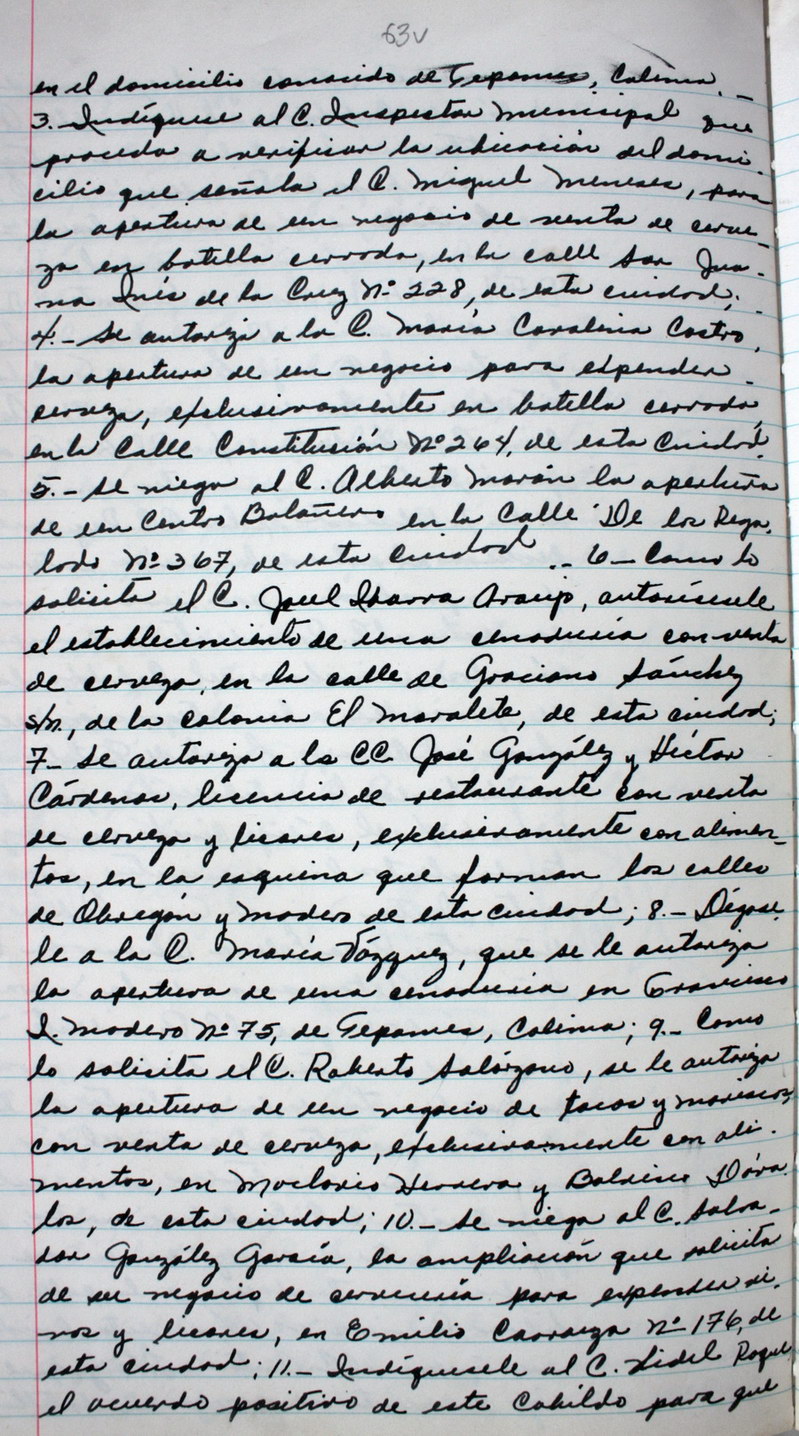 63v
en el domicilio conocido de Tepames, Colima. _
3.- Indíquese al C. Inspector Municipal que
proceda a verificar la ubicación del domi-
cilio que señala el C. Miguel Meneses, para
la apertura de un negocio de venta de cerve-
za en botella cerrada, en la calle Sor Jua-
na Inés de la Cruz Nº 228, de esta ciudad;
4.- Se autoriza a la C. María Carolina Castro,
la apertura de un negocio para expender
cerveza, exclusivamente en botella cerrada,
en la Calle Constitución Nº 264, de esta Ciudad.
5.- Se niega al C. Alberto Morán la apertura
de un Centro Botanero en la Calle De los Rega-
lado Nº 367, de esta ciudad .- 6- Como lo
solicita el C. Joel Ibarra Araujo, autorísesele
el establecimiento de una cenaduría con venta
de cerveza, en la calle de Graciano Sánchez
s/n., de la colonia El Moralete, de esta ciudad;
7- Se autoriza a los CC. José González y Héctor
Cárdenas, licencia de restaurante con venta
de cerveza y licores, exclusivamente con alimen-
tos, en la esquina que forman las calles
de Obregón y Madero de esta ciudad; 8.- Dígase-
le a la C. María Vázquez, que se le autoriza
la apertura de una cenaduría en Francisco
I. Madero Nº 75, de Tepames, Colima; 9.- Como
lo solicita el C. Roberto Solórzano, se le autoriza
la apertura de un negocio de tacos y mariscos
con venta de cerveza, exclusivamente con ali-
mentos, en Maclovio Herrera y Balvino Dáva-
los, de esta ciudad; 10.- Se niega al C. Salva-
dor González García, la ampliación que solicita
de su negocio de cervecería para expender vi-
nos y licores, en Emilio Carranza Nº 176, de
esta ciudad; 11.- Indíquesele al C. Fidel Roque
el acuerdo positivo de este Cabildo para que